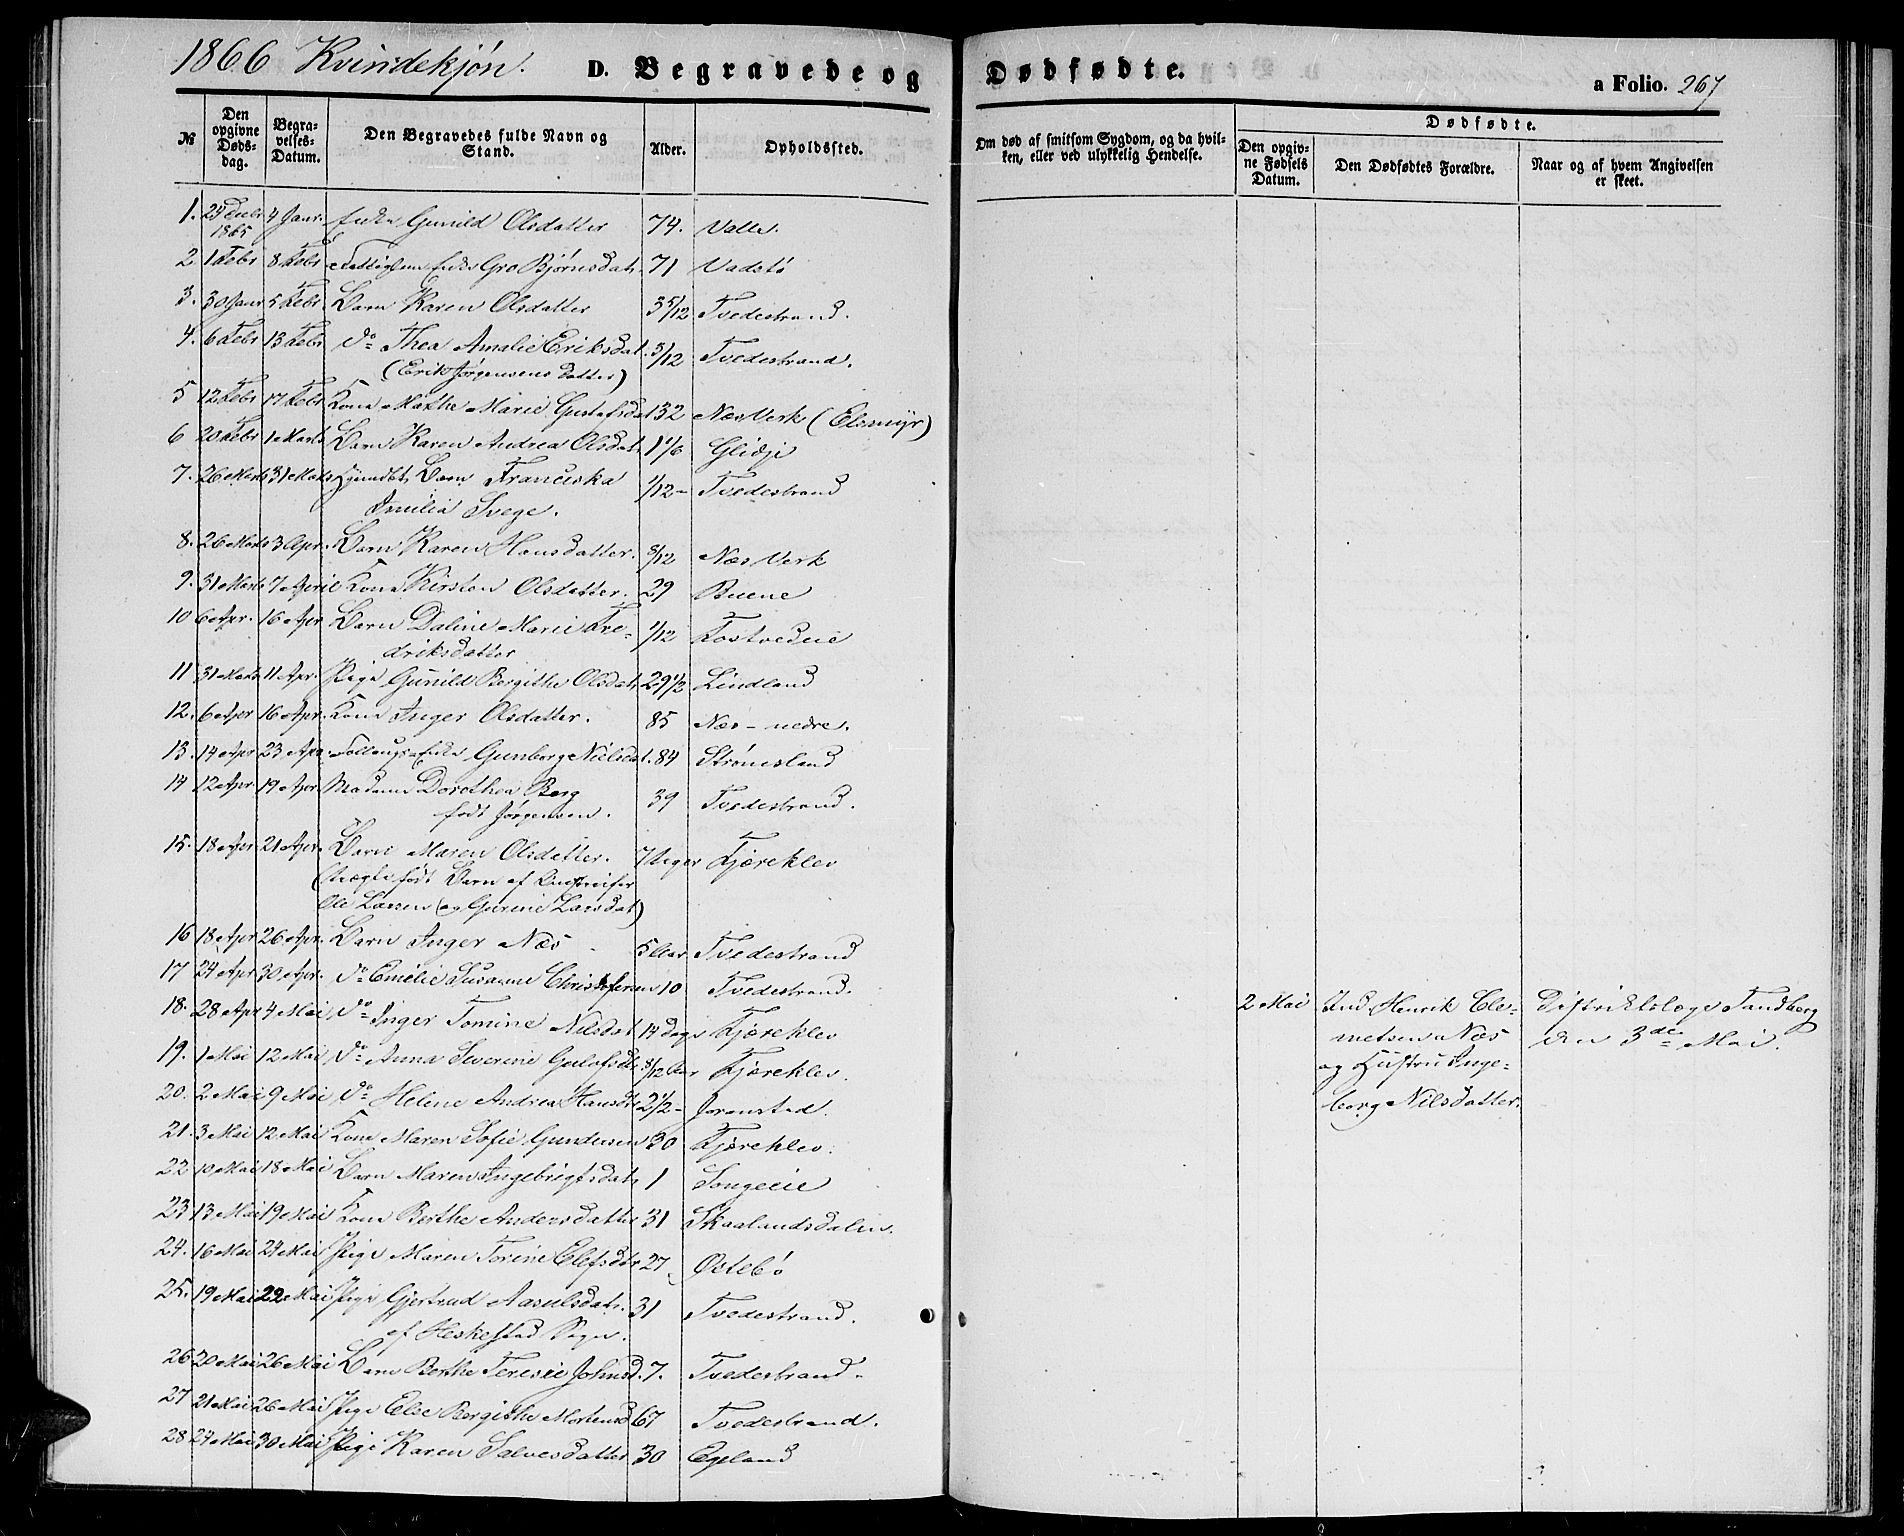 1866 Kvindekjøn. D. Begravede og Dødfødte. a Folio. 267
№ Den opgivne Dødsdag. Begravelses-Datum. Den Begravedes fulde Navn og Stand. Alder. Opholdssted. Om død af smitsom Sygdom, og da hvilken, eller ved ulykkelig Hendelse. Dødfødte. Den opgivne Fødsels Datum. Den Dødfødtes Forældre. Naar og af hvem Angivelsen er skeet.
1. 29 Decbr 1865 4 Janr Enke Gunild Olsdatter 74. Valle.
2. 1 Febr 8 Febr Fattiglem Enke Gro Bjørnsdatr 71 Vadstø
3. 30 Janr 5 Febr Barn Karen Olsdatter 3 5/12 Tvedestrand.
4. 6 Febr 13 Febr do Thea Amalie Eriksdat. 5/12 Tvedestrand.
(Erik Jørgensens datter)
5 12 Febr 17 Febr Kone Mathe Marie Gustafsdat 32 Næs Verk (Elsmyr)
6 20 Febr 1 Marts Barn Karen Andrea Olsdatr 1 1/6 Glidje
7. 26 Marts 31 Marts Barn Franciska 1/12 Tvedestrand
Emilia Svege.
8. 26 Marts 3 Apr. Barn Karen Hansdatter. 8/12 Næs Verk
9. 31 Marts 7 April Kone Kirsten Olsdatter. 29 Buene
10 6 Apr. 16 Apr Barn Daline Marie Fre- 1/12 Kostvedeie
driksdatter
11 31 Marts 11 Apr. Pige Gunild Bergithe Olsdatr 29 1/2 Lindland
12. 6 Apr 16 Apr. Kone Inger Olsdatter. 85 Næs - nedre.
13. 14 Apr 23 Apr Enke Gunborg Nielsdat. 84 Strømsland
14 12 Apr 19 Apr. Madame Dorothea Berg 39 Tvedestrand.
født Jørgensen.
15. 18 Apr 21 Apr. Barn Maren Olsdatter. 7 Uger Kjæreklev
(uægte født Barn af
Ole Larsen og Gurine Larsdat)
16 18 Apr 26 Apr. Barn Inger Næs 5 Aar Tvedestrand
17 24 Apr 30 Apr. do Emilie Susanne Christofersen 10 Tvedestrand.
18. 28 Apr 4 Mai do Inger Tomine Nilsdat 14 Dage Kjæreklev
2 Mai Ind. Henrik Cle- Distriktslæge Sandberg
metsen Næs den 3de Mai.
og Hustru Inge-
borg Nilsdatter.
19. 1 Mai 12 Mai do Anna Severine Gulofsdtr 8/12 Aar Kjæreklev.
20. 2 Mai 9 Mai do Helene Andrea Hansdtr 2 1/2 Joranstad.
21. 3 Mai 12 Mai Kone Maren Sofie Gundersen 30 Kjæreklev.
22 10 Mai 18 Mai Barn Maren Ingebrigtsdatr 1 Songeeie
23 13 Mai 19 Mai Kone Berthe Andersdatter 31 Skaalandsdalen.
24. 16 Mai 24 Mai Pige Maren Torine Elefsdtr 27 Østebø
25. 19 Mai 22 Mai Pige Gjertrud Aasulsdatr. 31 Tvedestrand.
af Heskestad Sogn.
26 20 Mai 26 Mai Barn Berthe Teresie Johnsd. 7. Tvedestrand.
27 21 Mai 26 Mai Pige Else Bergithe Mortensd 67 Tvedestrand.
28 27 Mai 30 Mai Pige Karen Salvesdatter 30 Egeland